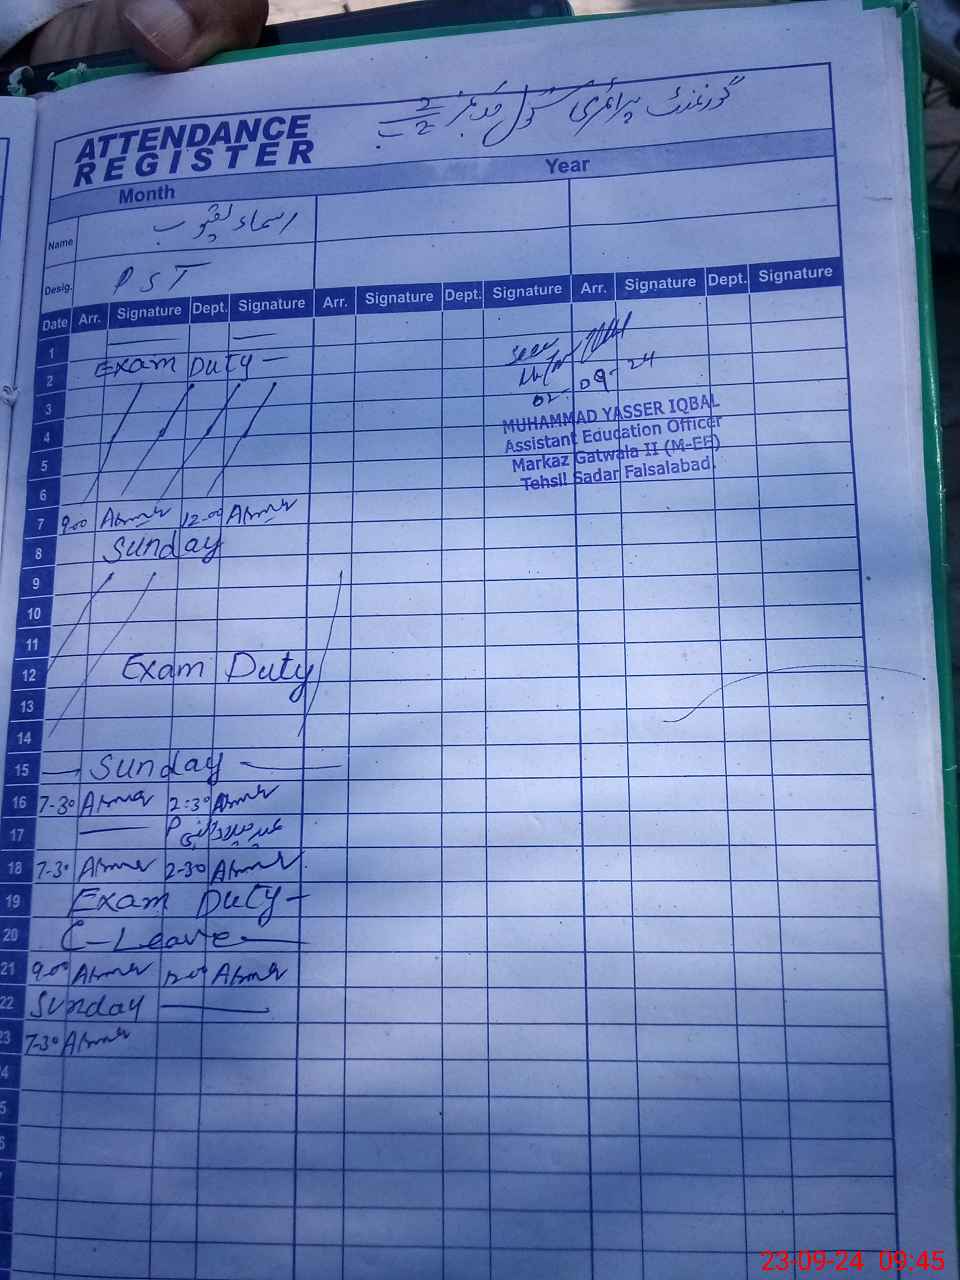 گورنمنٹ پرائمری سکول
ATTENDANCE
REGISTER
Month Year
Name اسماء یعقوب
Desig. PST
Date Arr. Signature Dept. Signature Arr. Signature Dept. Signature Arr. Signature Dept. Signature
1
2 Exam Duty
3
4
5
6
02-09-24
MUHAMMAD YASSER IQBAL
Assistant Education Officer
Markaz Gatwala II (M-EE)
Tehsil Sadar Faisalabad.
7 9-00 12-00
8 Sunday
9
10
11
12 Exam Duty
13
14
15 Sunday
16 7-30 2:30
17 عید میلاد النبی
18 7-30 2-30
19 Exam Duty
20 C-Leave
21 9-00 12-00
22 Sunday
23 7-30
23-09-24 09:45